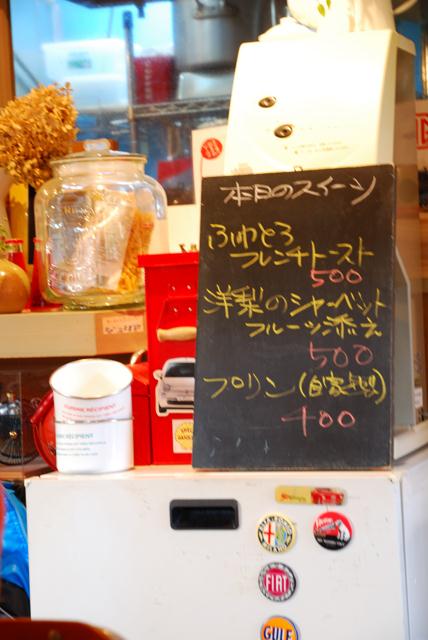 本日のスイーツ
ふわとろ
フレンチトースト
500
洋梨のシャーベット
フルーツ添え
500
プリン(自家製)
400
RECIPIENT
FIAT
GULF